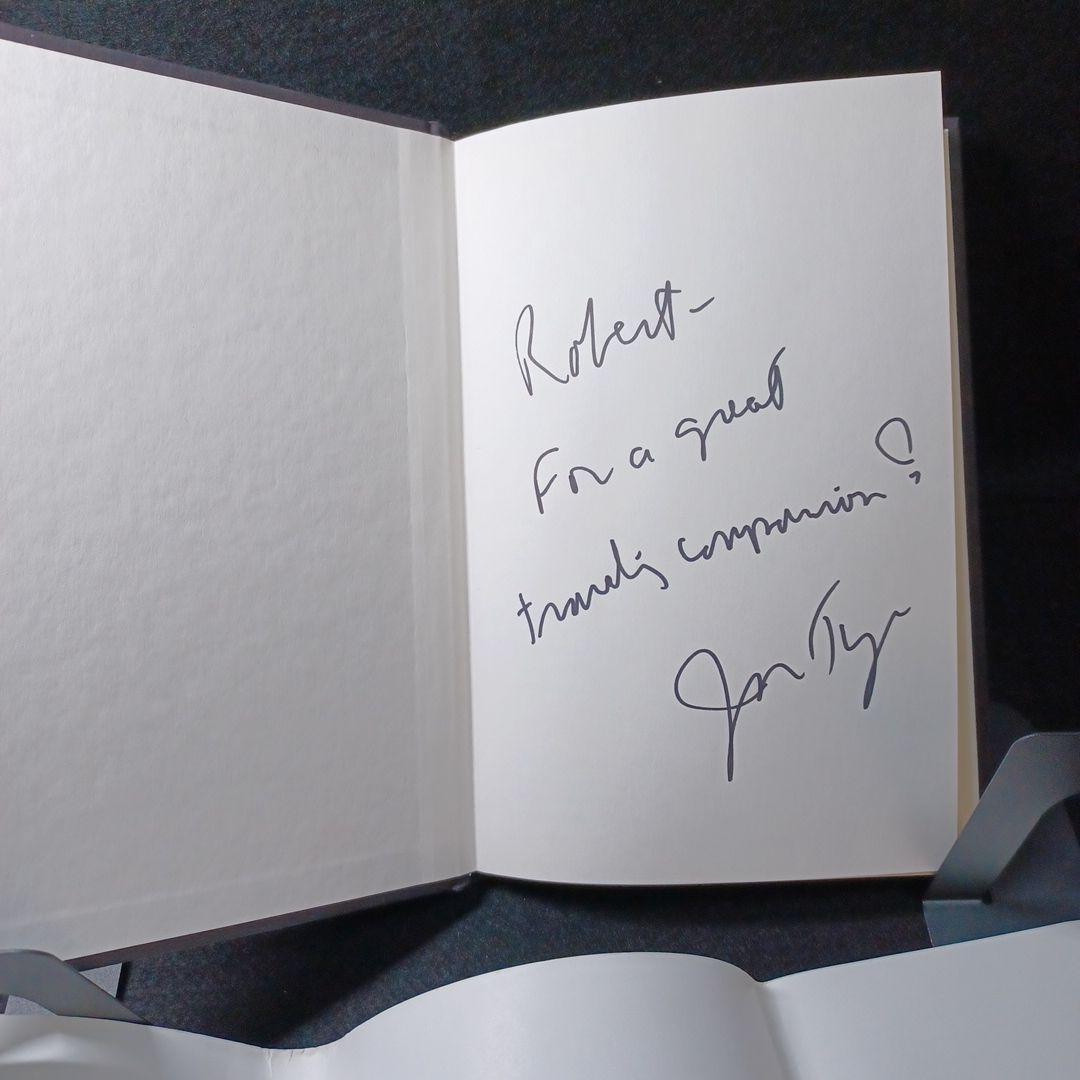 Robert-
For a great
traveling companion!